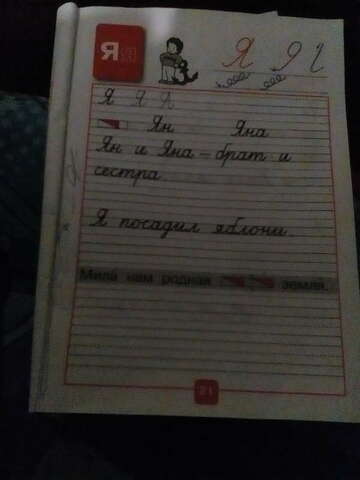 Яя Я
Я Я Я
Ян Яна
Ян и Яна – брат и
сестра.
Я посадил яблони.
Мила нам родная земля.
21